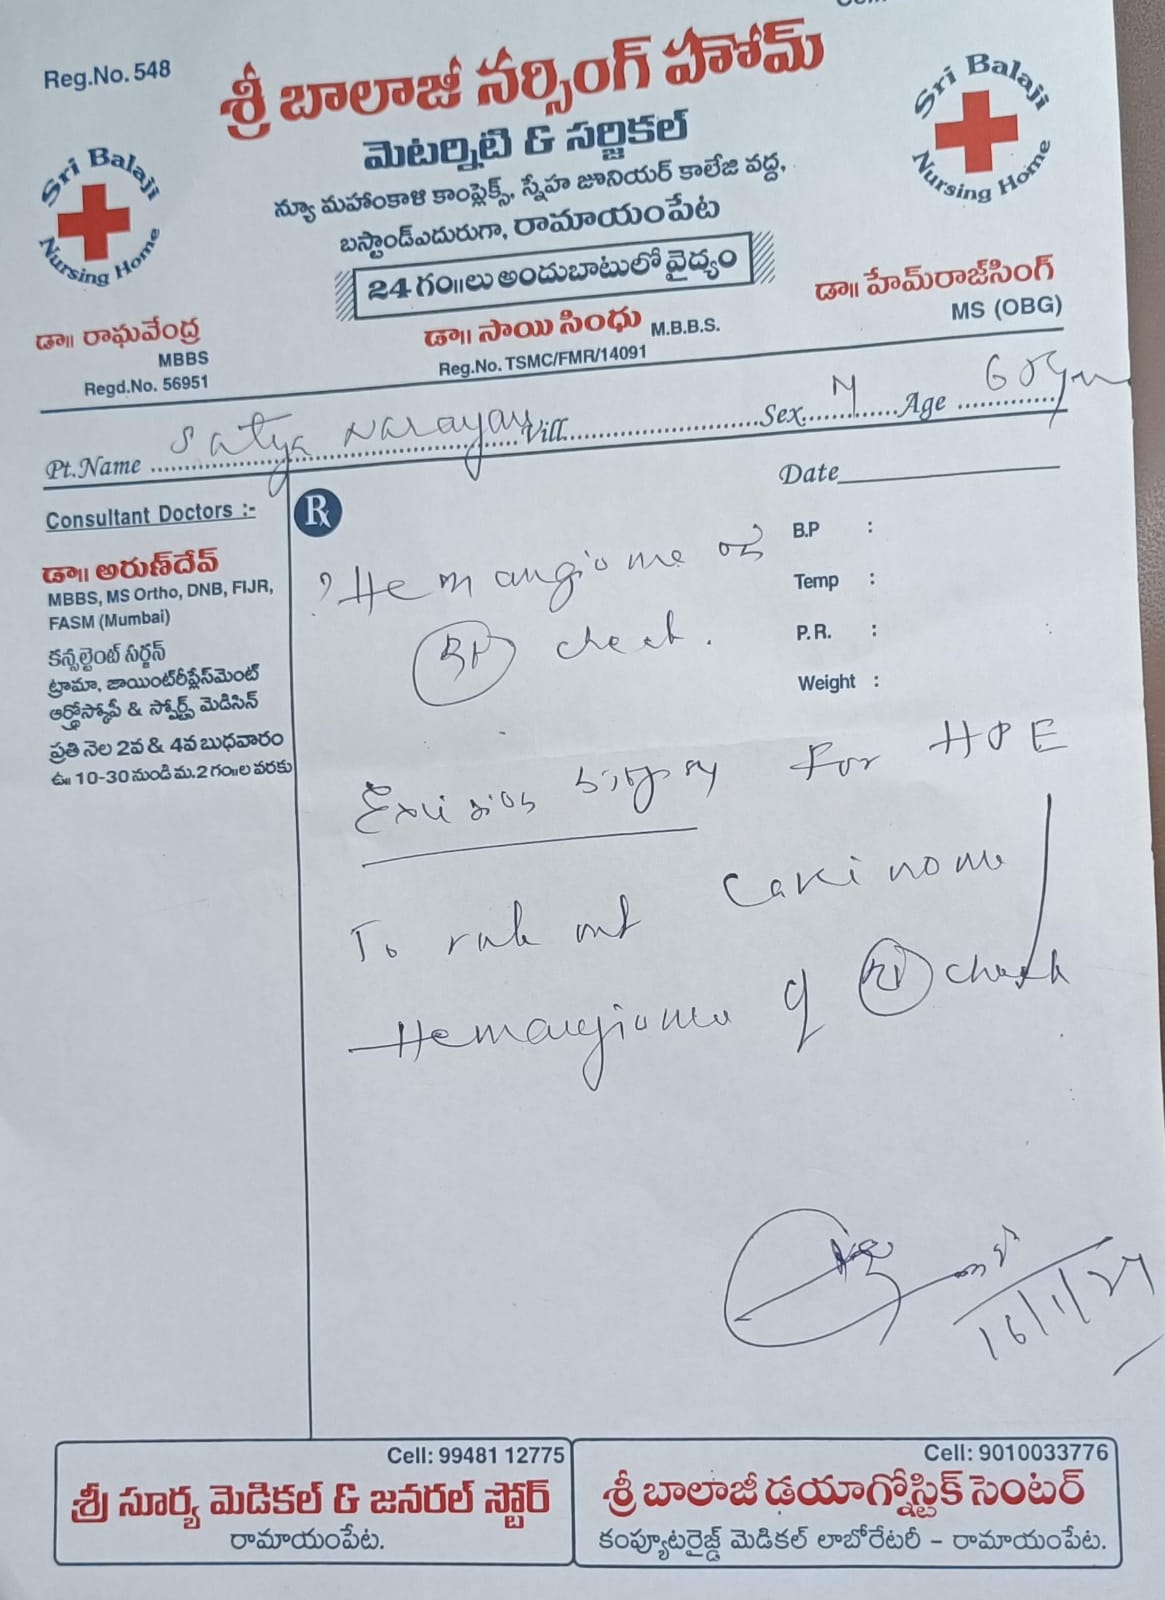 Reg.No. 548
శ్రీ బాలాజీ నర్సింగ్ హోమ్
మెటర్నిటి & సర్జికల్
న్యూ మహంకాళి కాంప్లెక్స్, స్నేహ జూనియర్ కాలేజి వద్ద,
బస్టాండ్ఎదురుగా, రామాయంపేట
24 గం॥లు అందుబాటులో వైద్యం
Sri Balaji
Nursing Home
Sri Balaji
Nursing Home
డా॥ రాఘవేంద్ర
MBBS
Regd.No. 56951
డా॥ సాయి సింధు M.B.B.S.
Reg.No. TSMC/FMR/14091
డా॥ హేమ్‌రాజ్‌సింగ్
MS (OBG)
Pt.Name Satya Narayan Vill. Sex M Age
Date
Consultant Doctors :-
డా॥ అరుణ్‌దేవ్
MBBS, MS Ortho, DNB, FIJR,
FASM (Mumbai)
కన్సల్టెంట్ సర్జన్
ట్రామా, జాయింట్‌రీప్లేస్‌మెంట్
ఆర్థ్రోస్కోపీ & స్పోర్ట్స్ మెడిసిన్
ప్రతి నెల 2వ & 4వ బుధవారం
ఉ॥ 10-30 నుండి మ.2 గం॥ల వరకు
Rx
B.P :
Temp :
P.R. :
Weight :
? Hemangioma
cheek.
Excision biopsy For HPE
To rule out Carcinoma /
Hemangioma of cheek
Cell: 99481 12775
శ్రీ సూర్య మెడికల్ & జనరల్ స్టోర్
రామాయంపేట.
Cell: 9010033776
శ్రీ బాలాజీ డయాగ్నోస్టిక్ సెంటర్
కంప్యూటరైజ్డ్ మెడికల్ లాబోరేటరీ – రామాయంపేట.